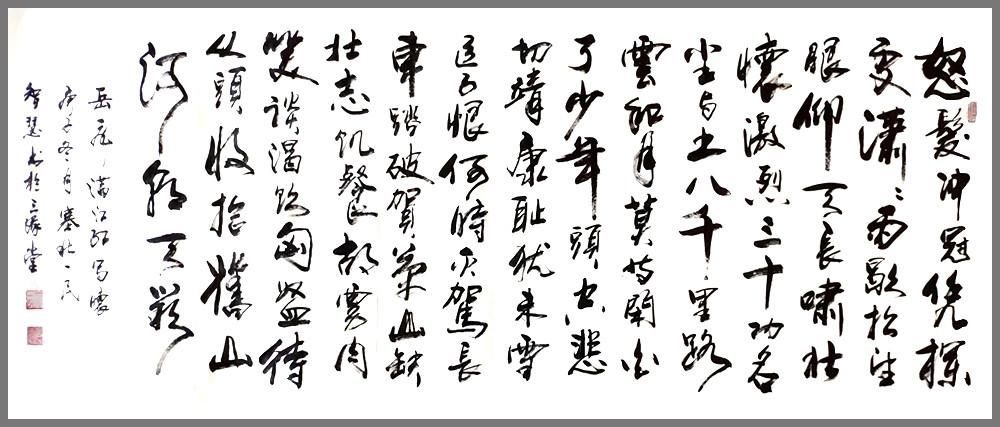 怒髮冲冠凭欄
處瀟瀟雨歇抬望
眼仰天長嘯壯
懷激烈三十功名
尘与土八千里路
雲和月莫等閑白
了少年頭空悲
切靖康耻犹未雪
臣子恨何時灭駕長
車踏破賀蘭山缺
壯志飢餐胡虜肉
笑談渴飲匈奴血待
从頭收拾舊山
河朝天闕
岳飛滿江紅写懷
庚子冬月塞北一民
智慧书於三堂